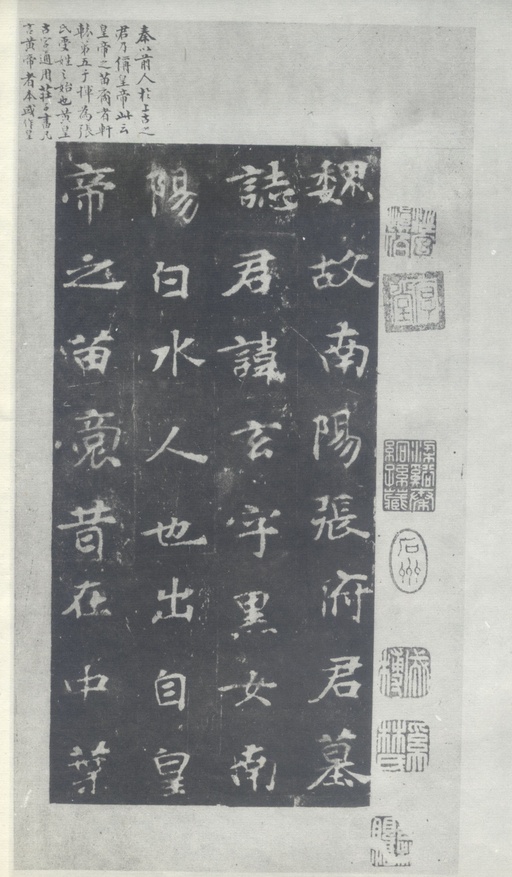 魏故南陽張府君墓
誌君諱玄字黑女南
陽白水人也出自皇
帝之苗裔昔在中葉
秦以前人於上古之
君乃偁皇帝此云
皇帝之苗裔者軒
轅弟五子揮為張
氏受姓之始也黃皇
古字通用莊子書凡
言黃帝者本或作皇
石州